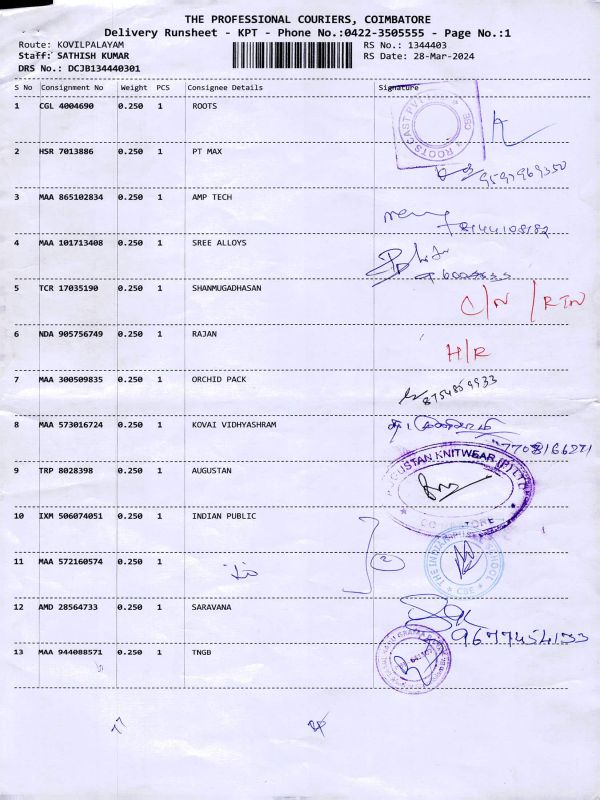 THE PROFESSIONAL COURIERS, COIMBATORE
Delivery Runsheet - KPT - Phone No.:0422-3505555 - Page No.:1
Route: KOVILPALAYAM
RS No.: 1344403
Staff: SATHISH KUMAR
RS Date: 28-Mar-2024
DRS No.: DCJB134440301
S No Consignment No Weight PCS Consignee Details Signature
1 CGL 4004690 0.250 1 ROOTS
ROOTS CAST PVT CBE
2 HSR 7013886 0.250 1 PT MAX
9597969350
3 MAA 865102834 0.250 1 AMP TECH
8144108182
4 MAA 101713408 0.250 1 SREE ALLOYS
5 TCR 17035190 0.250 1 SHANMUGADHASAN
C/N / RTN
6 NDA 905756749 0.250 1 RAJAN
H/R
7 MAA 300509835 0.250 1 ORCHID PACK
8754869933
8 MAA 573016724 0.250 1 KOVAI VIDHYASHRAM
7708166271
9 TRP 8028398 0.250 1 AUGUSTAN
AUGUSTAN KNITWEAR (P) LTD
10 IXM 506074051 0.250 1 INDIAN PUBLIC
11 MAA 572160574 0.250 1
2
THE INDIAN PUBLIC SCHOOL CBE
12 AMD 28564733 0.250 1 SARAVANA
9677454133
13 MAA 944088571 0.250 1 TNGB